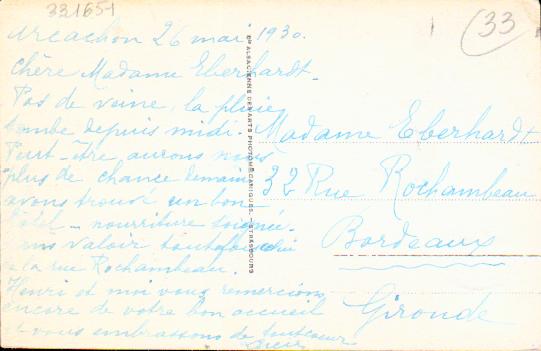 331651
33
Arcachon 26 mai 1930.
Chère Madame Eberhardt.
Pas de veine, la pluie
tombe depuis midi.
Peut-être aurons nous
plus de chance demain
avons trouvé un bon
hôtel - nourriture soignée
sans valoir toutefois celui
de la rue Rochambeau.
Henri et moi vous remercions
encore de votre bon accueil
et vous embrassons de tout coeur
Cie ALSACIENNE DES ARTS PHOTOMÉCANIQUES. - STRASBOURG
Madame Eberhardt
32 Rue Rochambeau
Bordeaux
Gironde